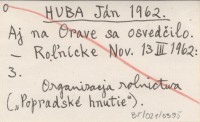 HUBA Ján 1962.
Aj na Orave sa osvedčilo.
— Roľnícke Nov. 13 III 1962:
3.
Organizacja rolnictwa
("Popradské hnutie").